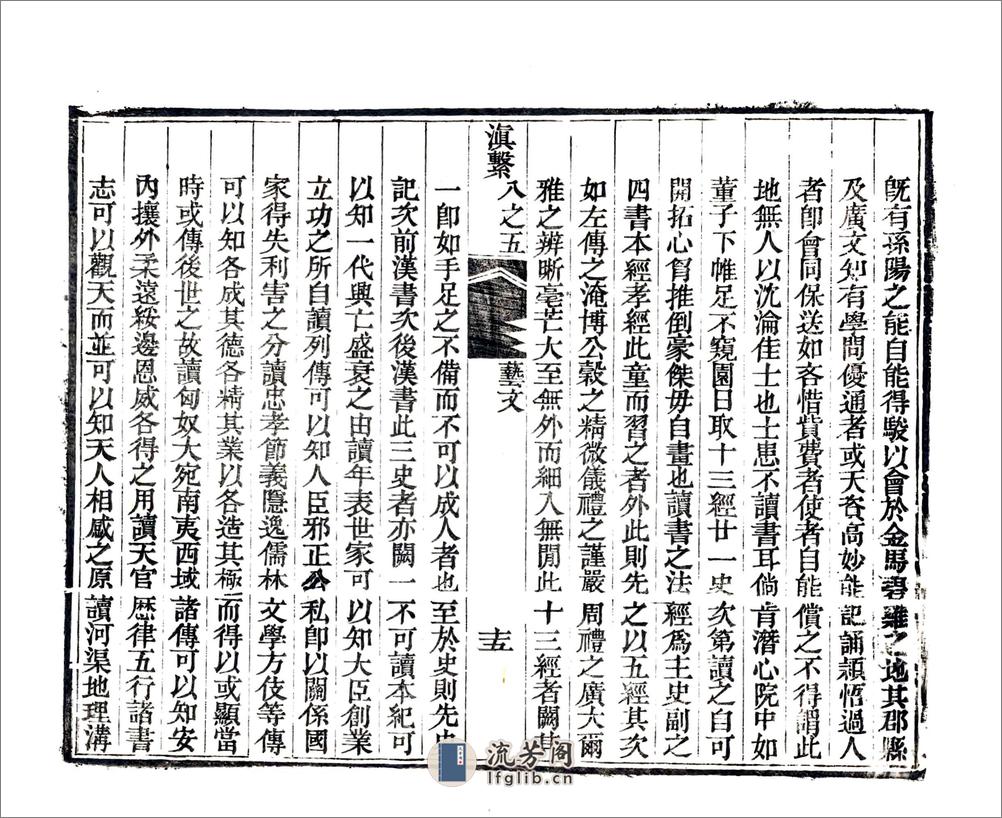 旣有孫陽之能自能得駿以會於金馬碧雞之地其郡縣
及廣文知有學問優通者或天資高妙能記誦穎悟過人
者卽會同保送如吝惜貲費者使者自能償之不得謂此
地無人以沈淪佳士也士患不讀書耳倘肯潛心院中如
董子下帷足不窺園日取十三經廿一史次第讀之自可
開拓心胷推倒豪傑毋自畫也讀書之法經爲主史副之
四書本經孝經此童而習之者外此則先之以五經其次
如左傳之淹博公穀之精微儀禮之謹嚴周禮之廣大爾
雅之辨晰毫芒大至無外而細入無閒此十三經者闕其
滇繫 八之五 藝文 十五
一卽如手足之不備而不可以成人者也至於史則先史
記次前漢書次後漢書此三史者亦闕一不可讀本紀可
以知一代興亡盛衰之由讀年表世家可以知大臣創業
立功之所自讀列傳可以知人臣邪正公私卽以關係國
家得失利害之分讀忠孝節義隱逸儒林文學方伎等傳
可以知各成其德各精其業以各造其極而得以或顯當
時或傳後世之故讀匈奴大宛南夷西域諸傳可以知安
內攘外柔遠綏邊恩威各得之用讀天官歷律五行諸書
志可以觀天而並可以知天人相感之原讀河渠地理溝
流芳阁
lfglib.cn